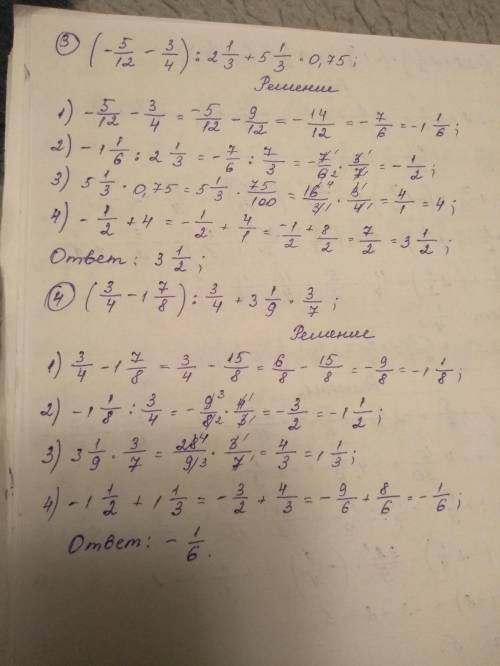 ③ (-5/12 - 3/4) : 2 1/3 + 5 1/3 · 0,75;
Решение
1) -5/12 - 3/4 = -5/12 - 9/12 = -14/12 = -7/6 = -1 1/6;
2) -1 1/6 : 2 1/3 = -7/6 : 7/3 = -7/6 · 3/7 = -1/2;
3) 5 1/3 · 0,75 = 5 1/3 · 75/100 = 16/3 · 3/4 = 4/1 = 4;
4) -1/2 + 4 = -1/2 + 4/1 = -1/2 + 8/2 = 7/2 = 3 1/2;
Ответ: 3 1/2;
④ (3/4 - 1 7/8) : 3/4 + 3 1/9 · 3/7;
Решение
1) 3/4 - 1 7/8 = 3/4 - 15/8 = 6/8 - 15/8 = -9/8 = -1 1/8;
2) -1 1/8 : 3/4 = -9/8 · 4/3 = -3/2 = -1 1/2;
3) 3 1/9 · 3/7 = 28/9 · 3/7 = 4/3 = 1 1/3;
4) -1 1/2 + 1 1/3 = -3/2 + 4/3 = -9/6 + 8/6 = -1/6;
Ответ: -1/6.